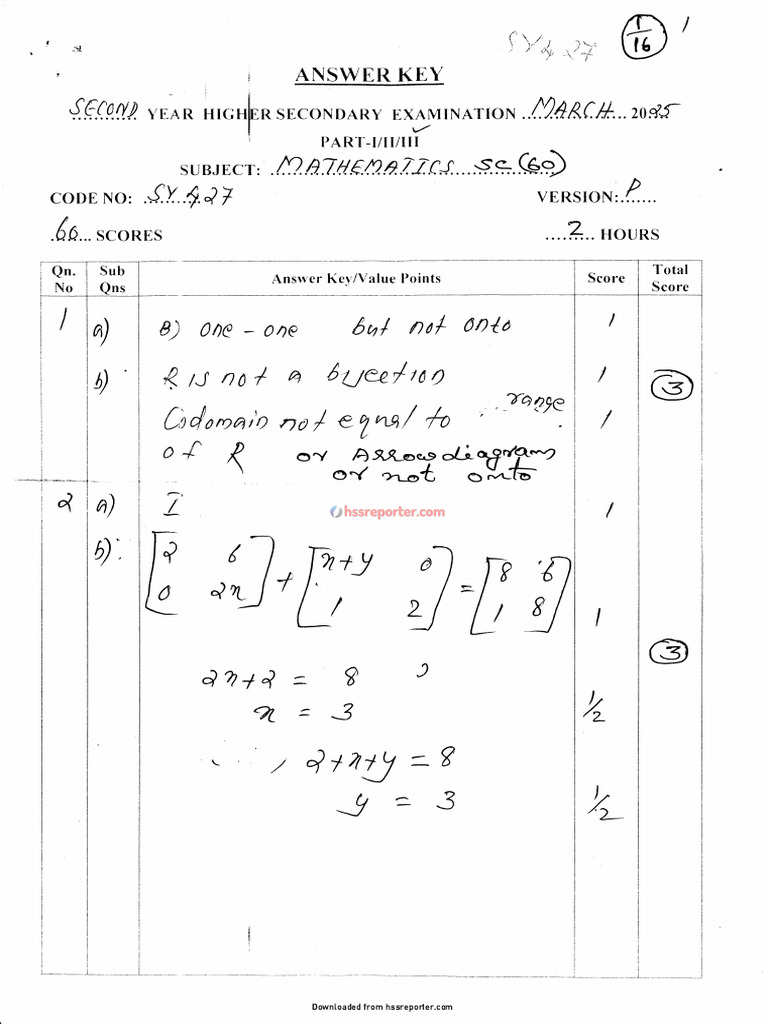 SY 427
1/16
1
ANSWER KEY
SECOND YEAR HIGHER SECONDARY EXAMINATION ...MARCH... 2025
PART-I/II/III ✓
SUBJECT: MATHEMATICS SC (60)
CODE NO: SY 427 VERSION: P
60 SCORES 2 HOURS
Qn. No Sub Qns Answer Key/Value Points Score Total Score
1 a) B) one - one but not onto 1
b) R is not a bijection 1 3
Codomain not equal to range 1
of R or Arrow diagram
or not onto
2 a) I 1
hssreporter.com
b) [2 6; 0 2x] + [x+y 0; 1 2] = [8 6; 1 8] 1
3
2x+2 = 8
x = 3 1/2
2+x+y = 8
y = 3 1/2
Downloaded from hssreporter.com